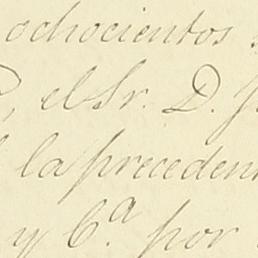 ochocientos
, el Sr. D. J
la preceden
y C.ª por